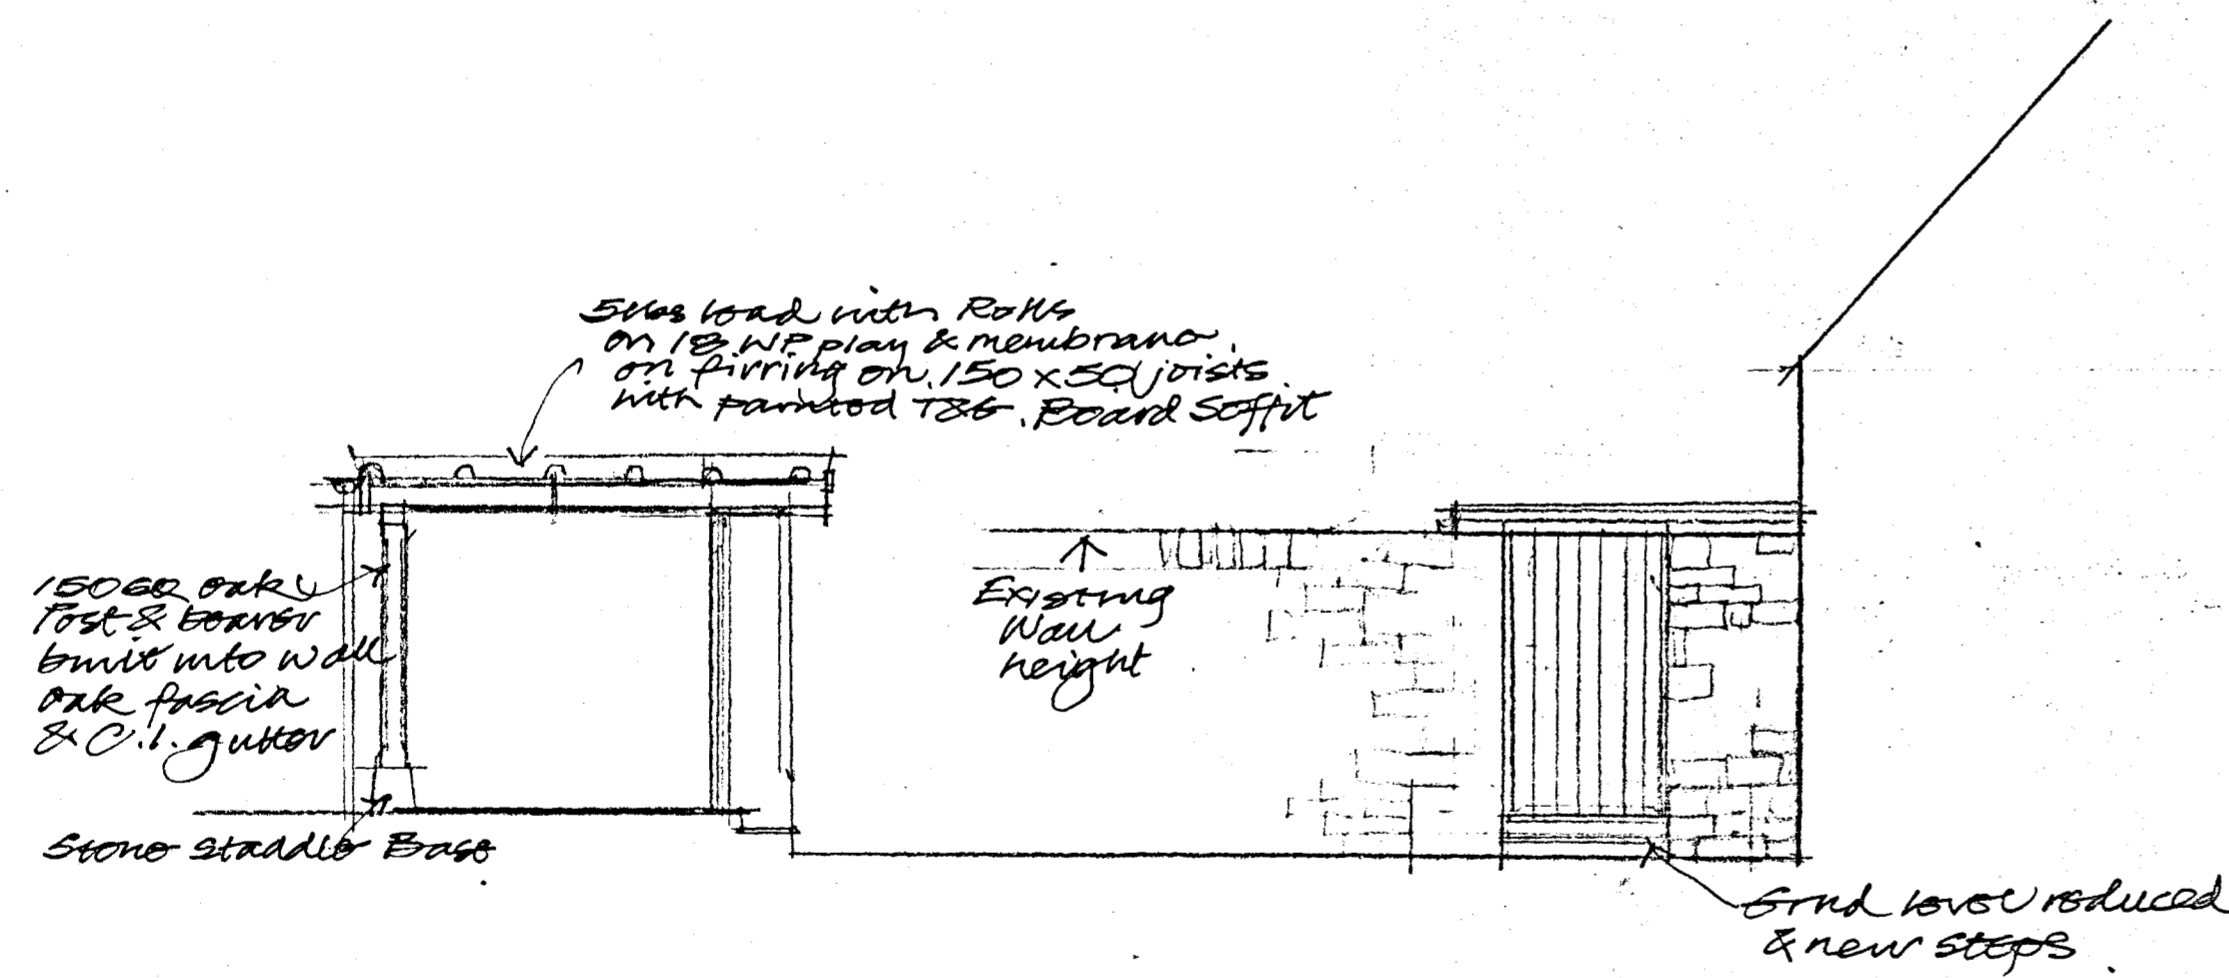 5lbs lead with Rolls
on 18 WP play & membrane.
on firring on 150 x 50 joists
with painted T&G. Board Soffit
150 SQ oak
Post & bearer
built into wall
oak fascia
& C.I. gutter
Stone staddle Base
Existing
Wall
height
Grnd level reduced
& new steps.